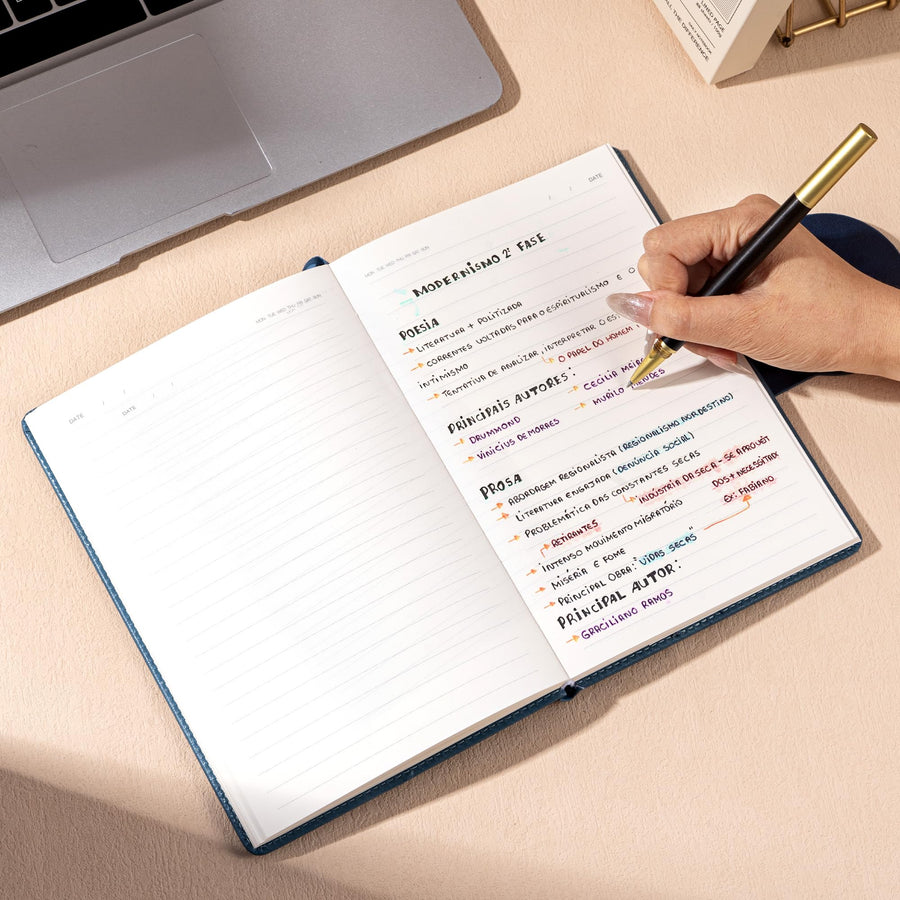 LINED PAGE
ALL THE DIFFERENCE
MON TUE WED THU FRI SAT SUN
DATE / /
DATE / /
MON TUE WED THU FRI SAT SUN
/ / DATE
MODERNISMO 2ª FASE
POESIA
→ LITERATURA + POLITIZADA
→ CORRENTES VOLTADAS PARA O ESPIRITUALISMO E O
INTIMISMO
→ TENTATIVA DE ANALIZAR, INTERPRETAR O
↳ O PAPEL DO HOMEM
PRINCIPAIS AUTORES:
→ DRUMMOND
→ VINICIUS DE MORAES
→ CECÍLIA
→ MURILO MENDES
PROSA
→ ABORDAGEM REGIONALISTA (REGIONALISMO NORDESTINO)
→ LITERATURA ENGAJADA (DENÚNCIA SOCIAL)
→ PROBLEMÁTICA DAS CONSTANTES SECAS
↳ INDÚSTRIA DA SECA - SE APROVEIT
DOS + NECESSITADOS
EX: FABIANO
RETIRANTES
→ INTENSO MOVIMENTO MIGRATÓRIO
→ MISÉRIA E FOME
→ PRINCIPAL OBRA: "VIDAS SECAS"
PRINCIPAL AUTOR:
→ GRACILIANO RAMOS